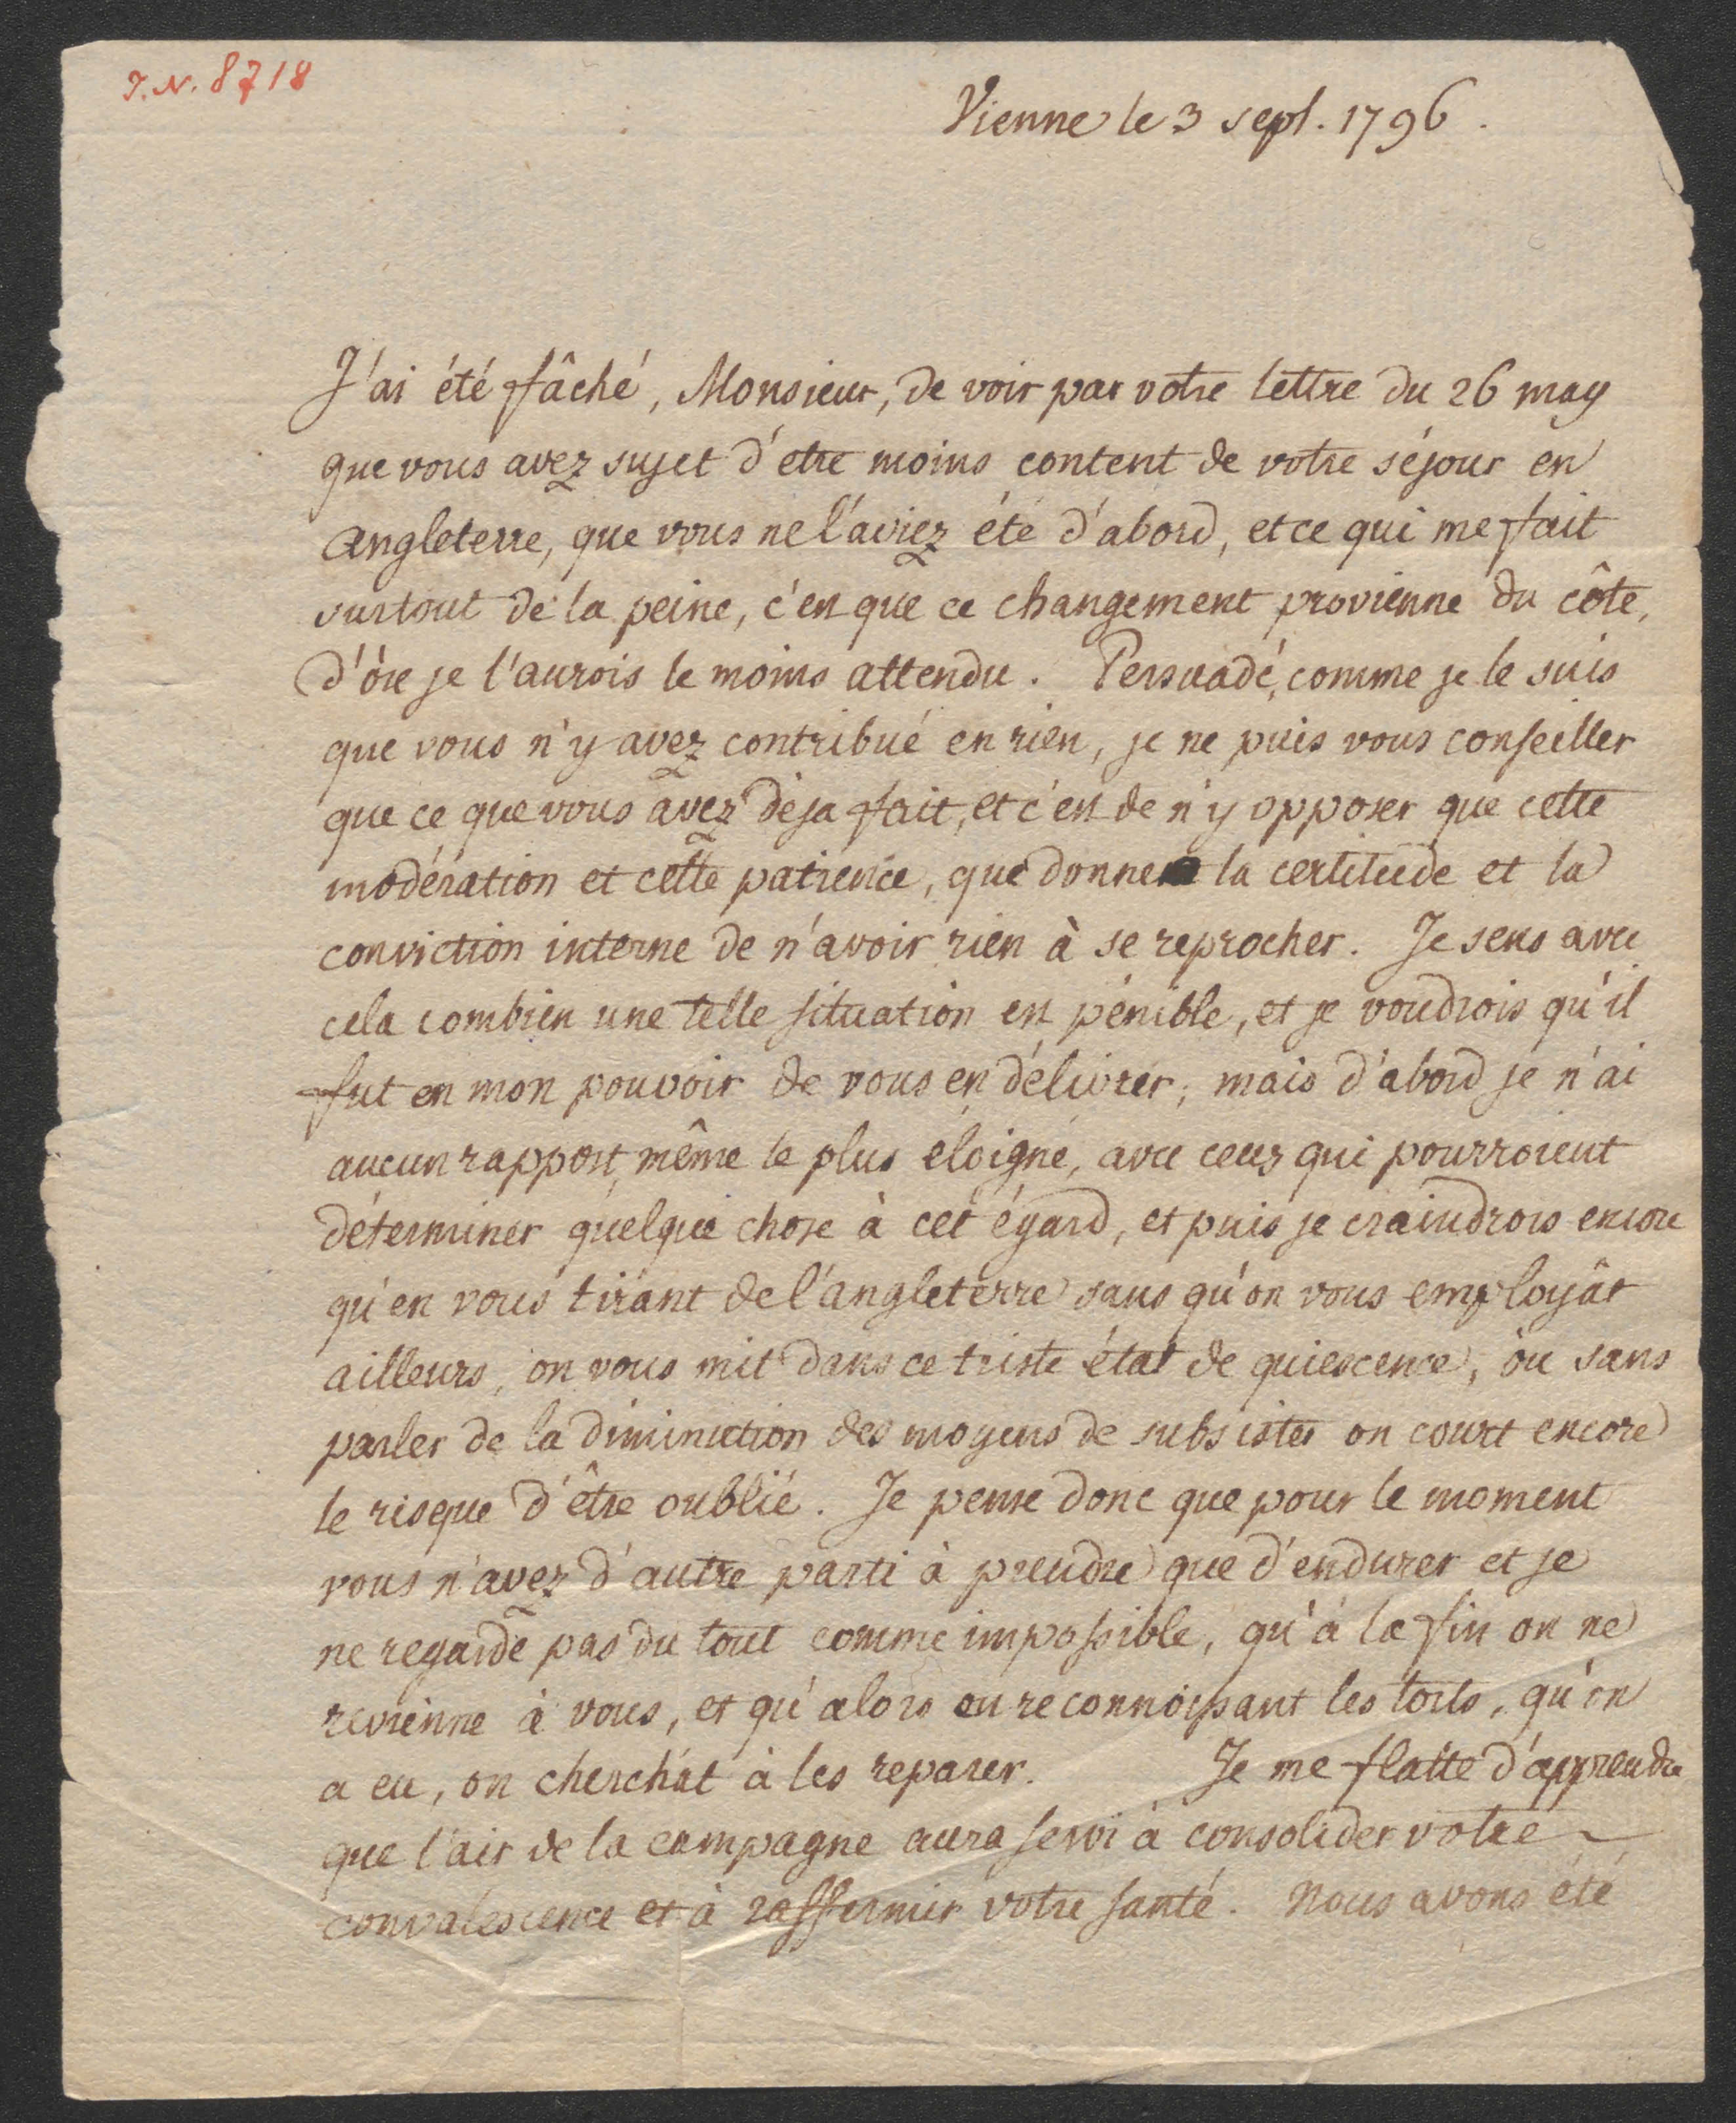 J.N. 8718
Vienne le 3 sept. 1796.
J'ai été fâché, Monsieur, de voir par votre lettre du 26 may
que vous avez sujet d'etre moins content de votre séjour en
angleterre, que vous ne l'aviez été d'abord, et ce qui me fait
surtout de la peine, c'est que ce changement provienne du côte,
d'òu je l'aurois le moins attendu. Persuadé, comme je le suis
que vous n'y avez contribué en rien, je ne puis vous conseiller
que ce que vous avez deja fait, et c'est de n'y opposer que cette
modération et cette patience, que donne la certitude et la
conviction interne de n'avoir rien à se reprocher. Je sens avec
cela combien une telle situation est pénible, et je voudrois qu'il
fut en mon pouvoir de vous en délivrer; mais d'abord je n'ai
aucun rapport, même le plus eloigné, avec ceux qui pourroient
déterminer quelque chose à cet égard, et puis je craindrois encore
qu'en vous tirant de l'angleterre sans qu'on vous employât
ailleurs, on vous mit dans ce triste état de quiescence, òu sans
parler de la diminution des moyens de subsister on court encore
le risque d'être oublié. Je pense donc que pour le moment
vous n'avez d'autre parti à prendre que d'endurer et je
ne regarde pas du tout comme impossible, qu'à la fin on ne
revienne à vous, et qu'alors en reconnoissant les torts, qu'on
a eu, on cherchât à les reparer. Je me flatte d'apprendre
que l'air de la campagne aura servi à consolider votre
convalescence et à raffermir votre santé. Nous avons été